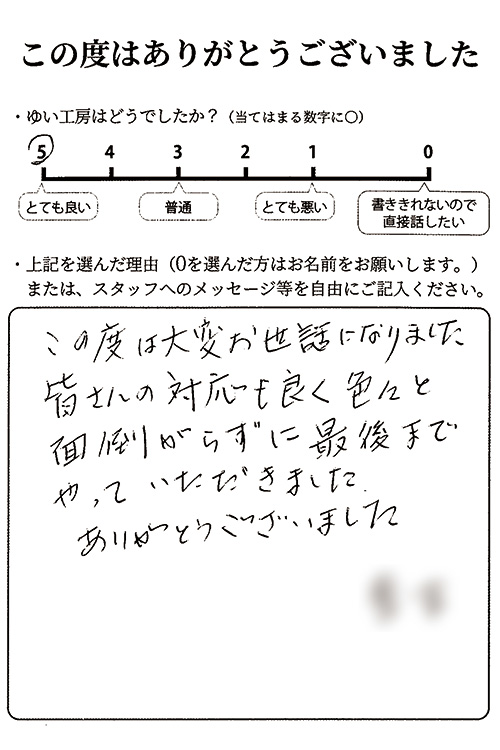 この度はありがとうございました
・ゆい工房はどうでしたか？（当てはまる数字に○）
5 4 3 2 1 0
とても良い 普通 とても悪い 書ききれないので直接話したい
・上記を選んだ理由（0を選んだ方はお名前をお願いします。）
または、スタッフへのメッセージ等を自由にご記入ください。
この度は大変お世話になりました
皆さんの対応も良く色々と
面倒がらずに最後まで
やっていただきました.
ありがとうございました